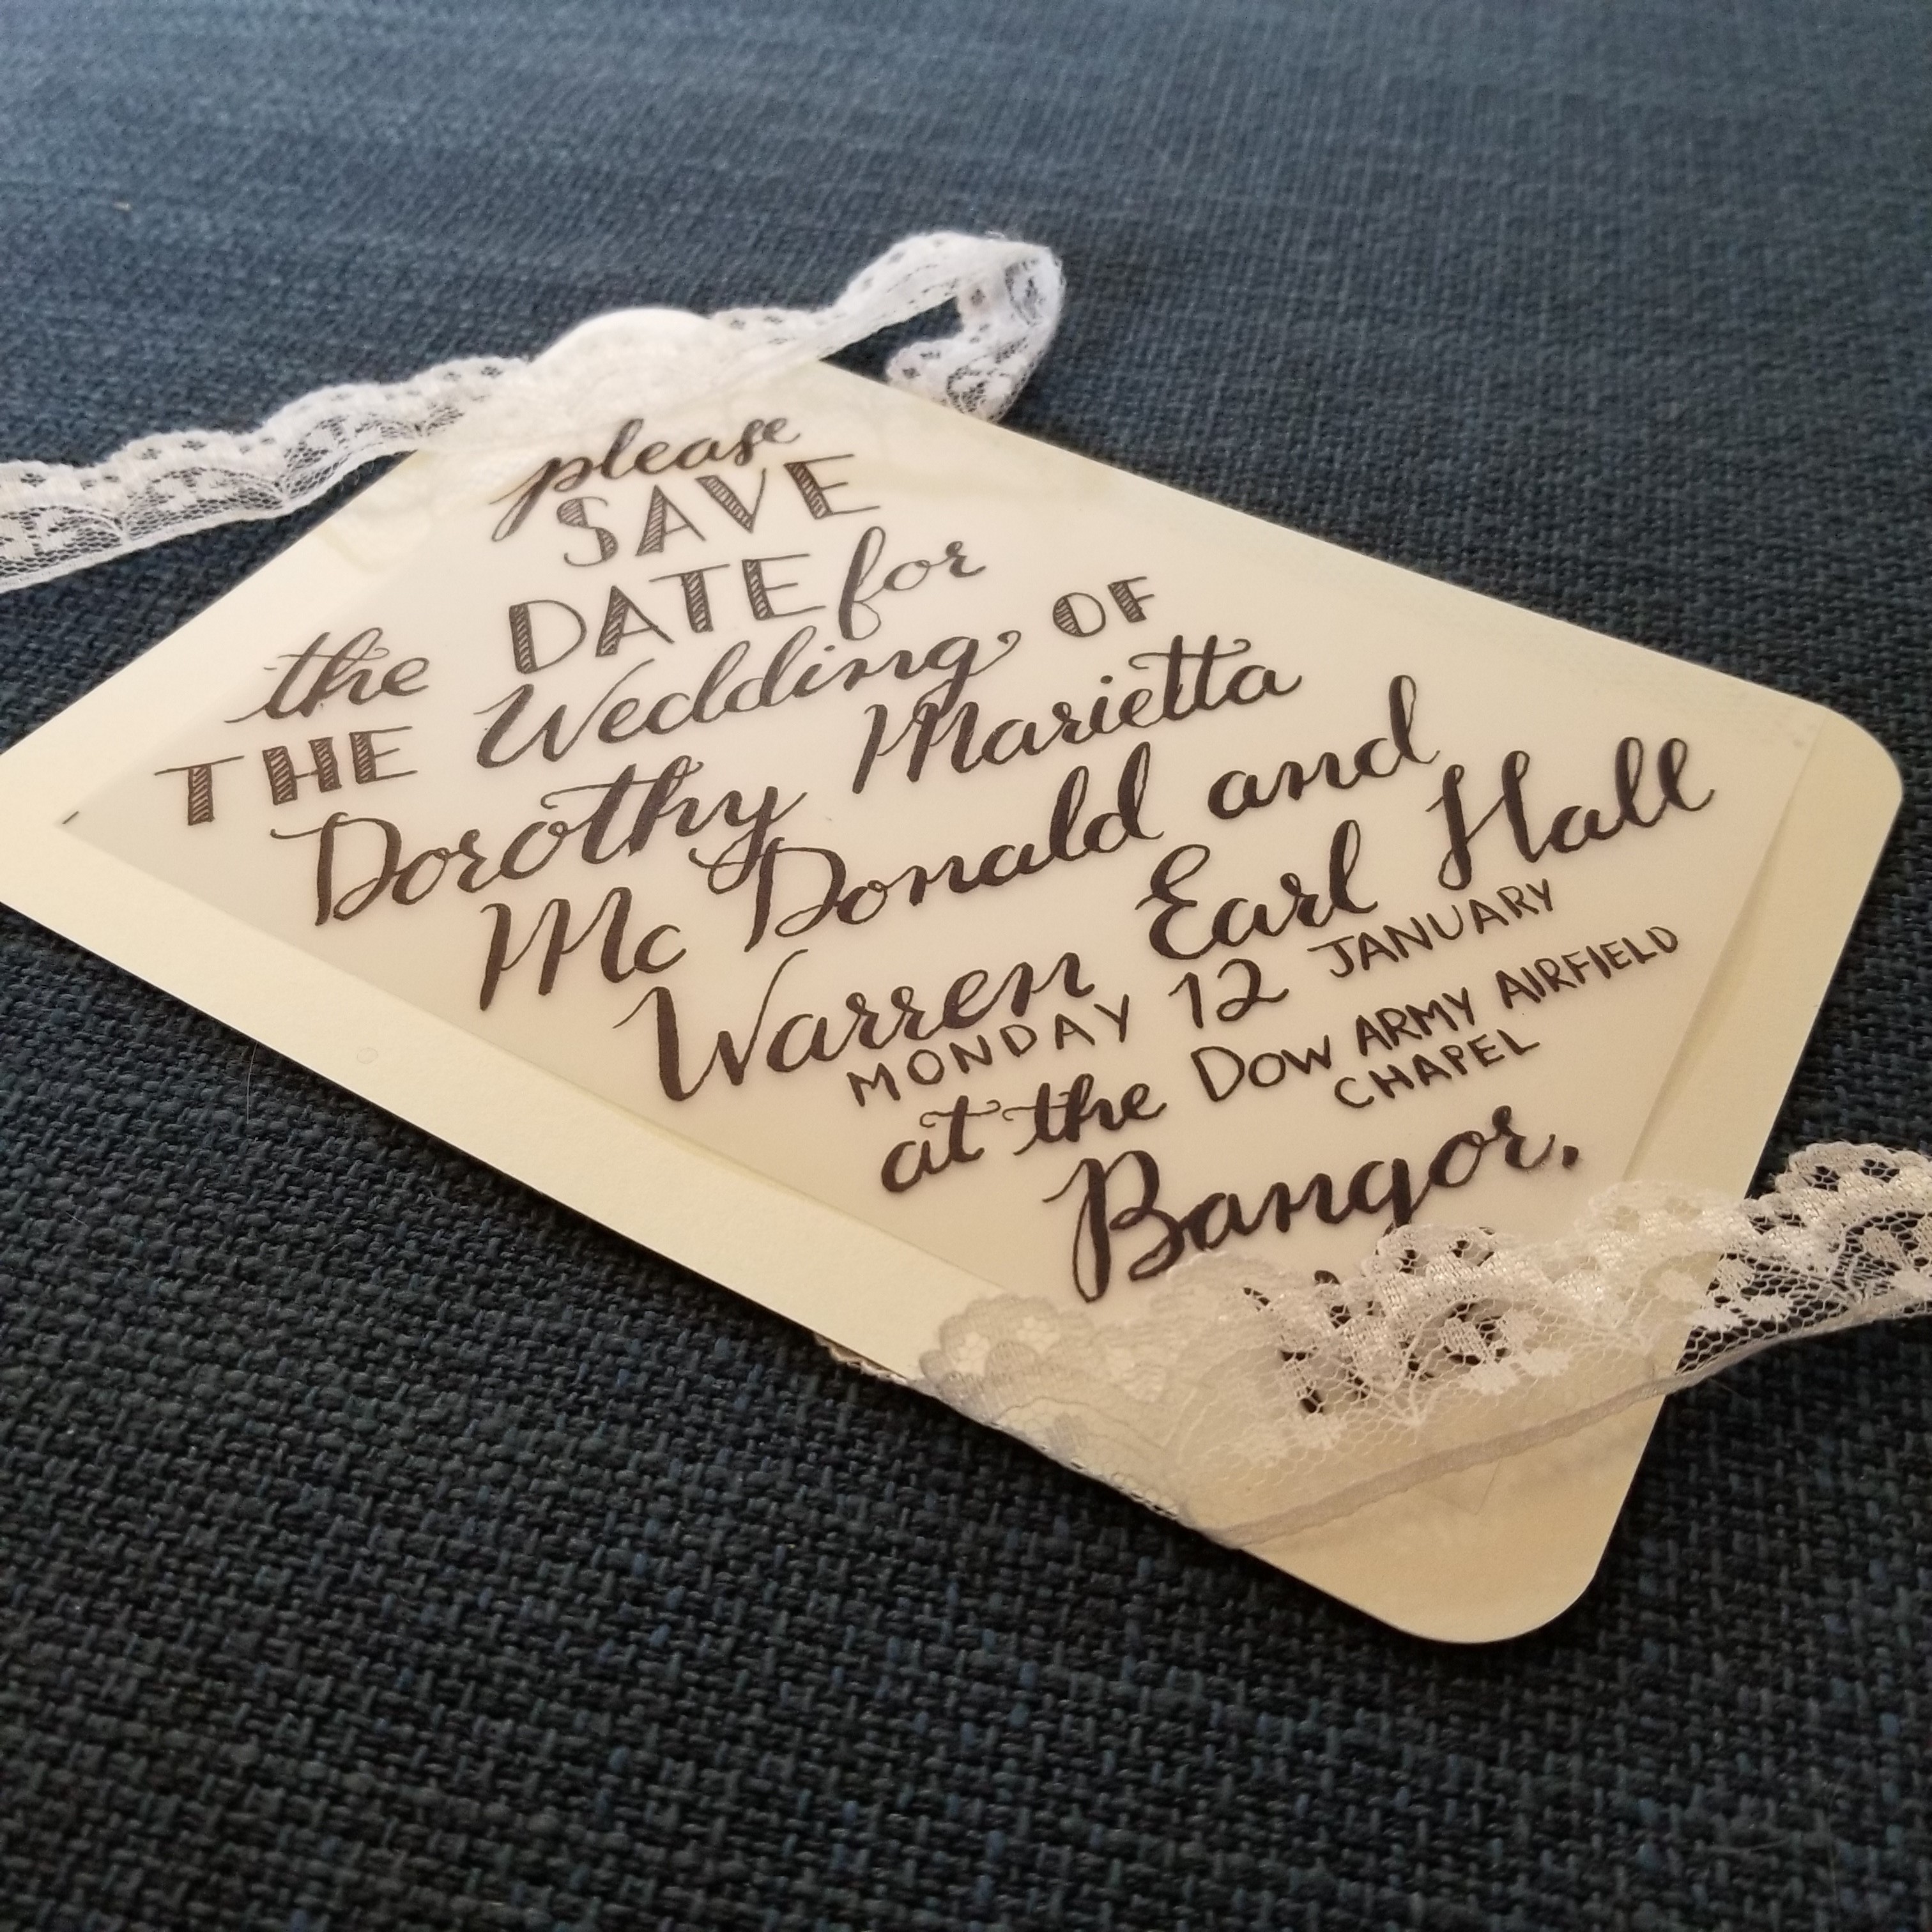 please
SAVE
the DATE for
THE Wedding OF
Dorothy Marietta
Mc Donald and
Warren Earl Hall
MONDAY 12 JANUARY
at the Dow ARMY AIRFIELD
CHAPEL
Bangor,